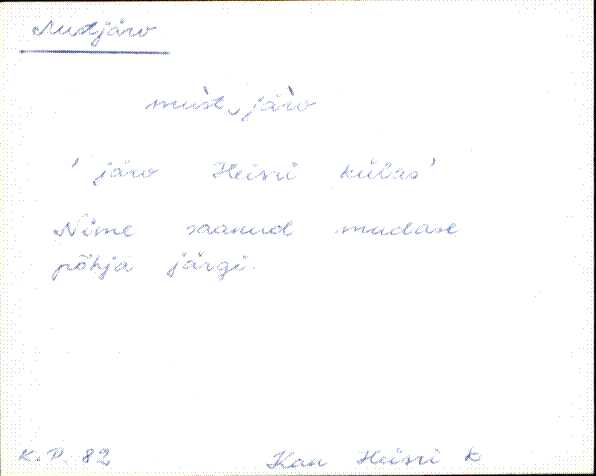 Mustjärv
mus̀t‿jär̀v
' järv Heisri külas'
Nime saanud mudase
põhja järgi.
K.P. 82
Kan Heisri k